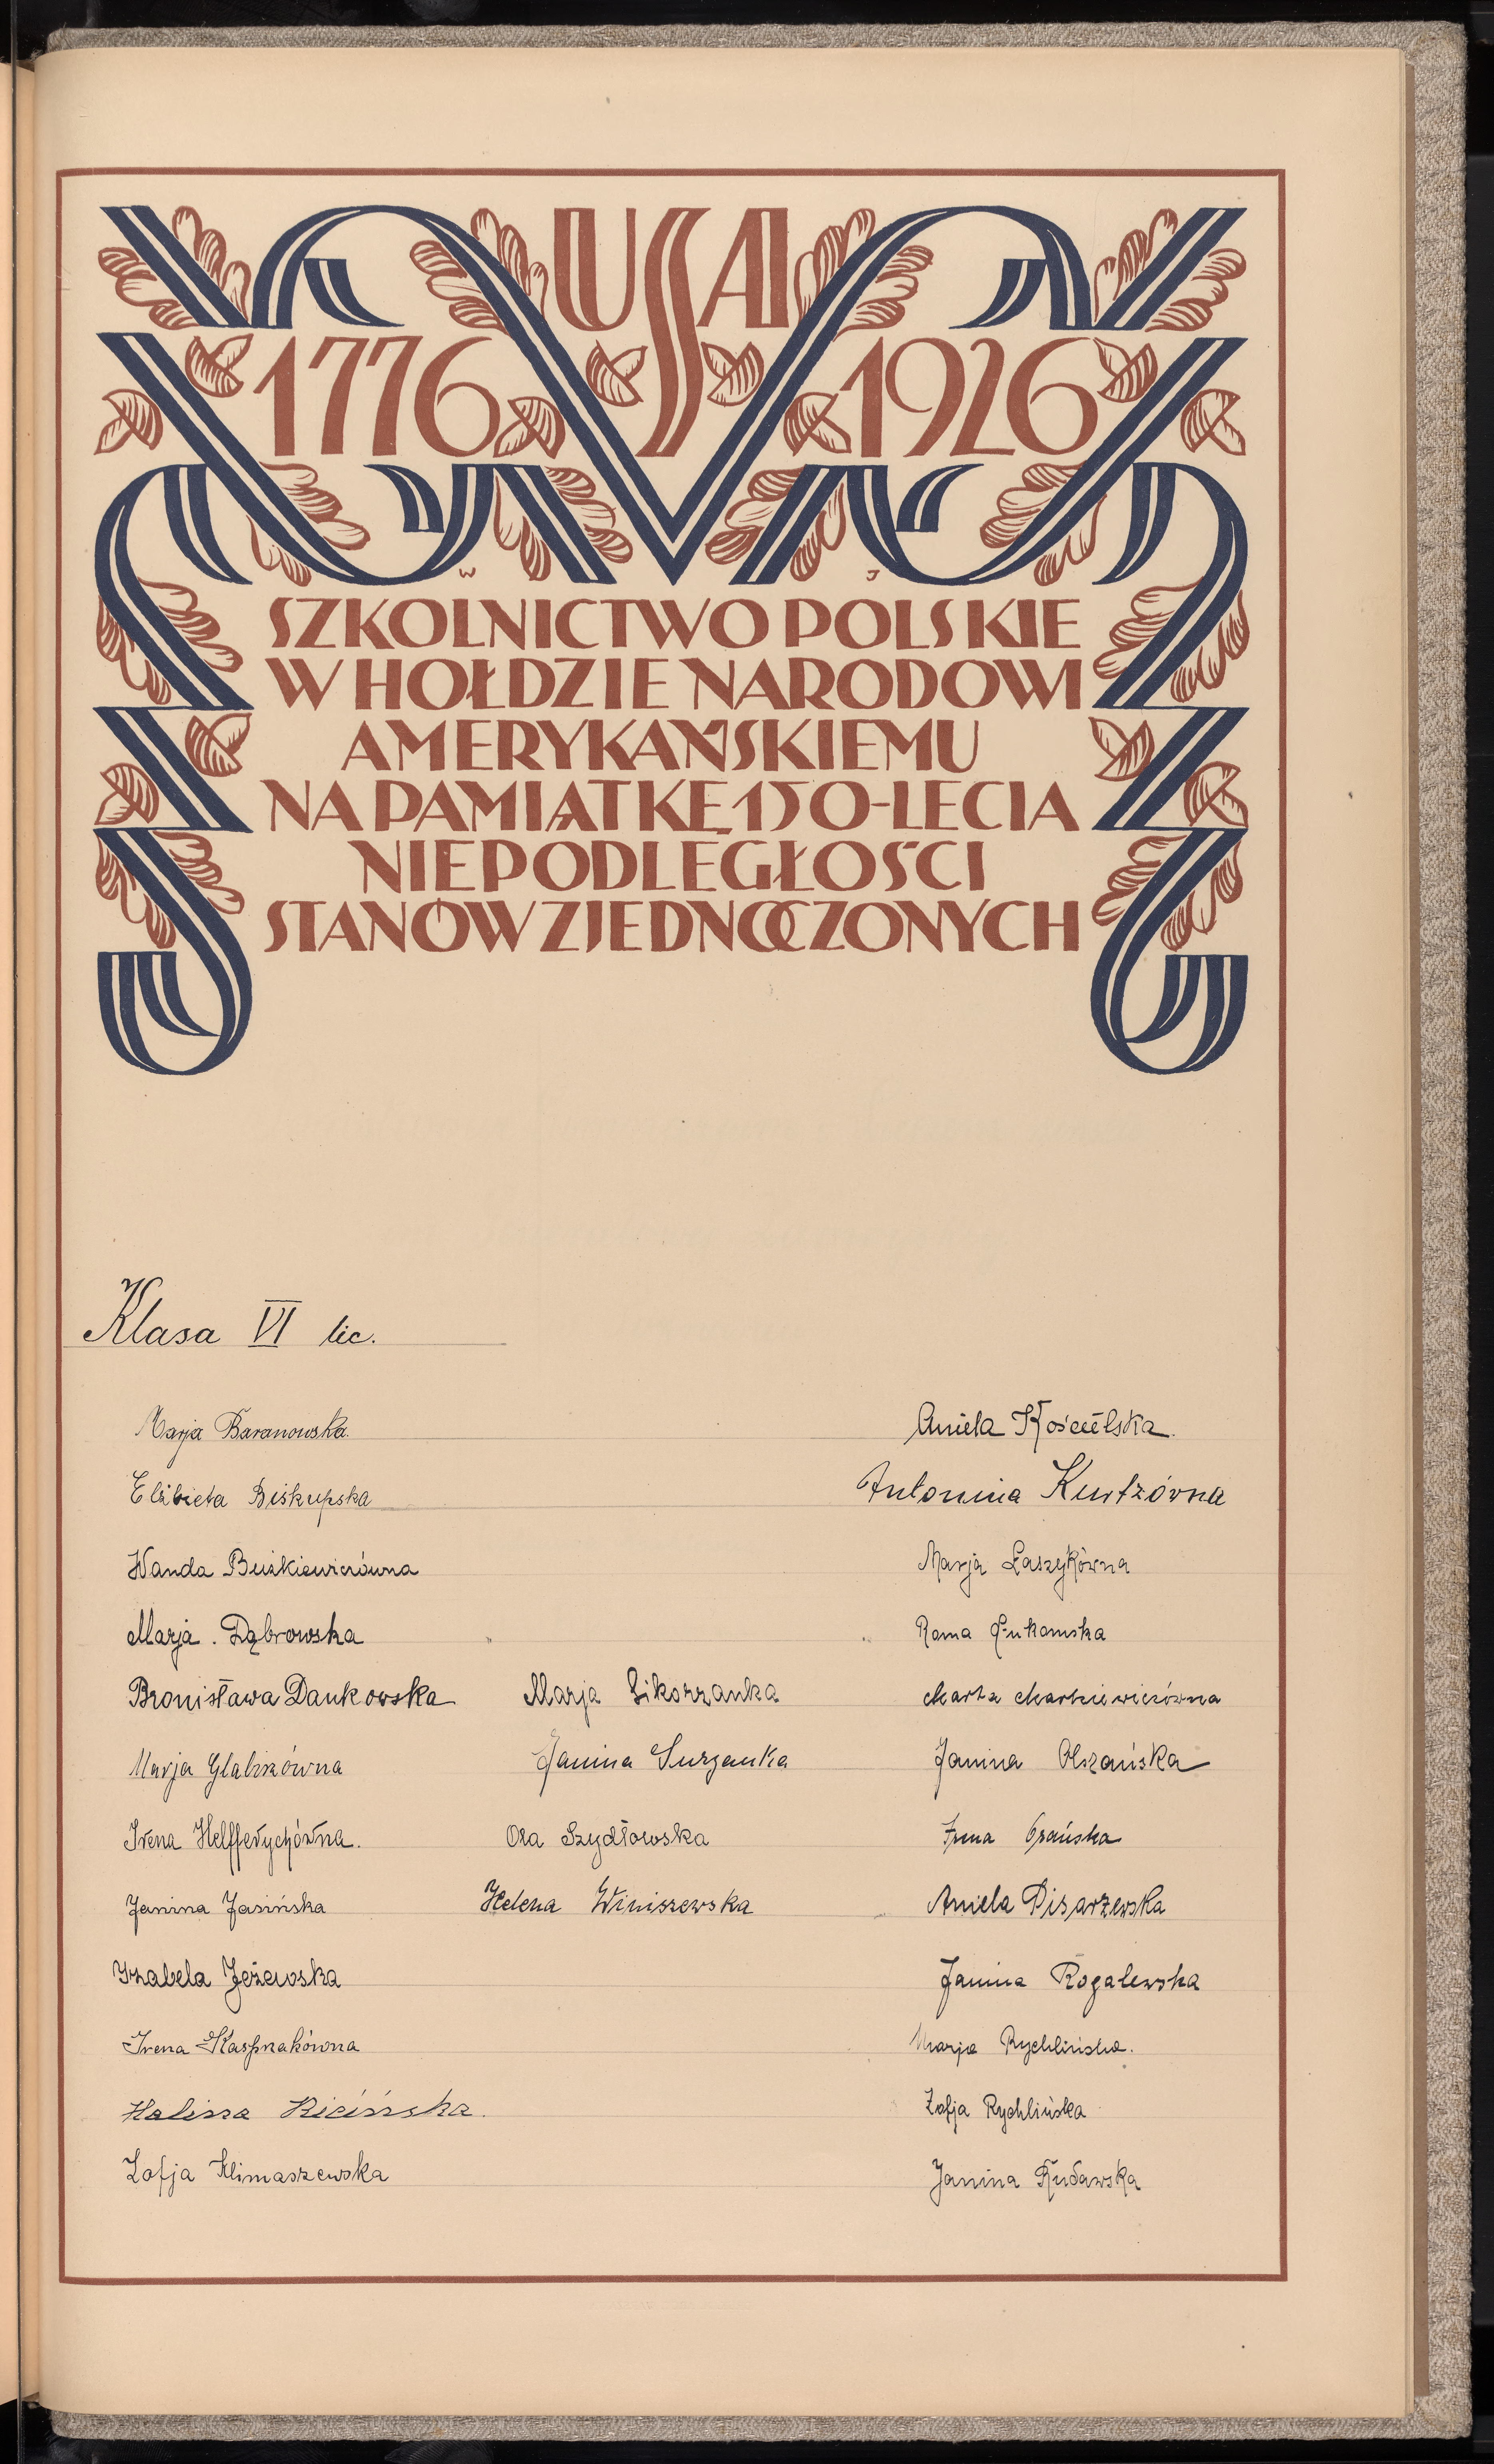 USA
1776 1926
W J
SZKOLNICTWO POLSKIE
W HOŁDZIE NARODOWI
AMERYKAŃSKIEMU
NA PAMIĄTKĘ 150-LECIA
NIEPODLEGŁOŚCI
STANÓW ZJEDNOCZONYCH
Klasa VI lic.
Marja Baranowska.
Elżbieta Biskupska
Wanda Buśkiewiczówna
Marja . Dąbrowska
Bronisława Dankowska
Marja Glabiszówna
Irena Helfferychówna.
Janina Jasińska
Izabela Jeżewska
Irena Kasprzakówna
Halina Kicińska.
Zofja Klimaszewska
Marja Sikorzanka
Janina Surzanka
Oza Szydłowska
Helena Winiszewska
Aniela Kościelska.
Antonina Kurtzówna
Marja Łaszykówna
Roma Łukomska
Marta Markiewiczówna
Janina Olszańska
Irena Orańska
Aniela Pisarzewska
Janina Rogalewska
Marja Rychlińska.
Zofja Rychlińska
Janina Rudawska